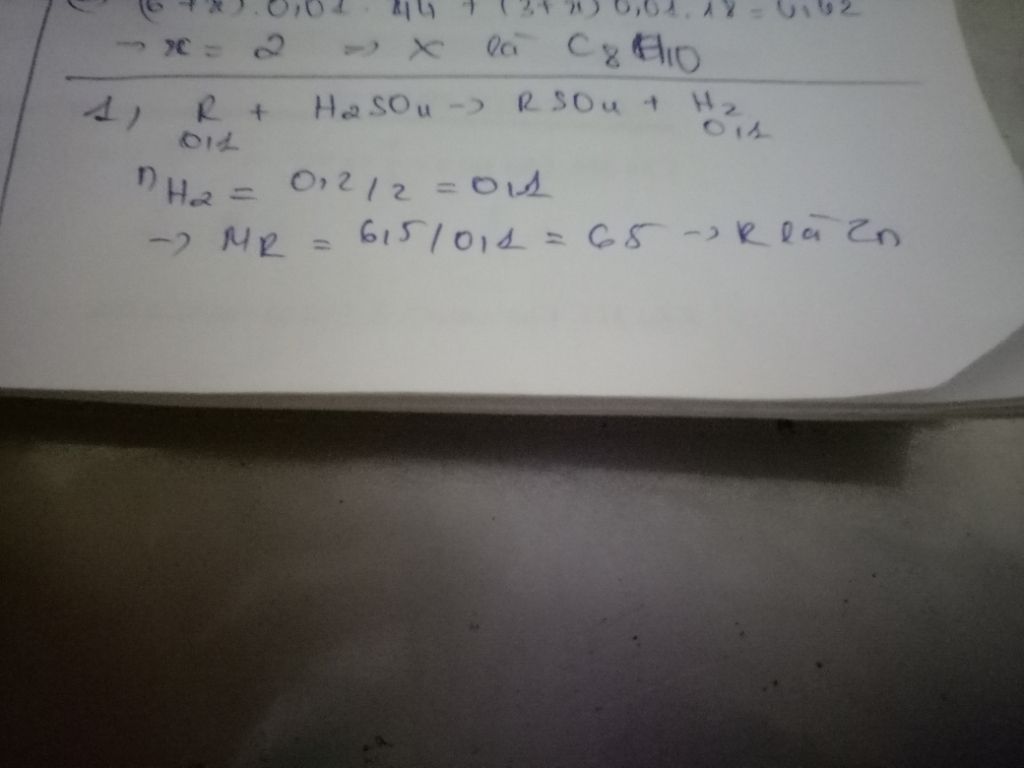 (6+x).0,01.44 + (3+x)0,01.18 = 4,42
→ x = 2 => X là C8H10
1, R + H2SO4 -> RSO4 + H2
0,1 0,1
nH2 = 0,2/2 = 0,1
-> MR = 6,5/0,1 = 65 -> R là Zn